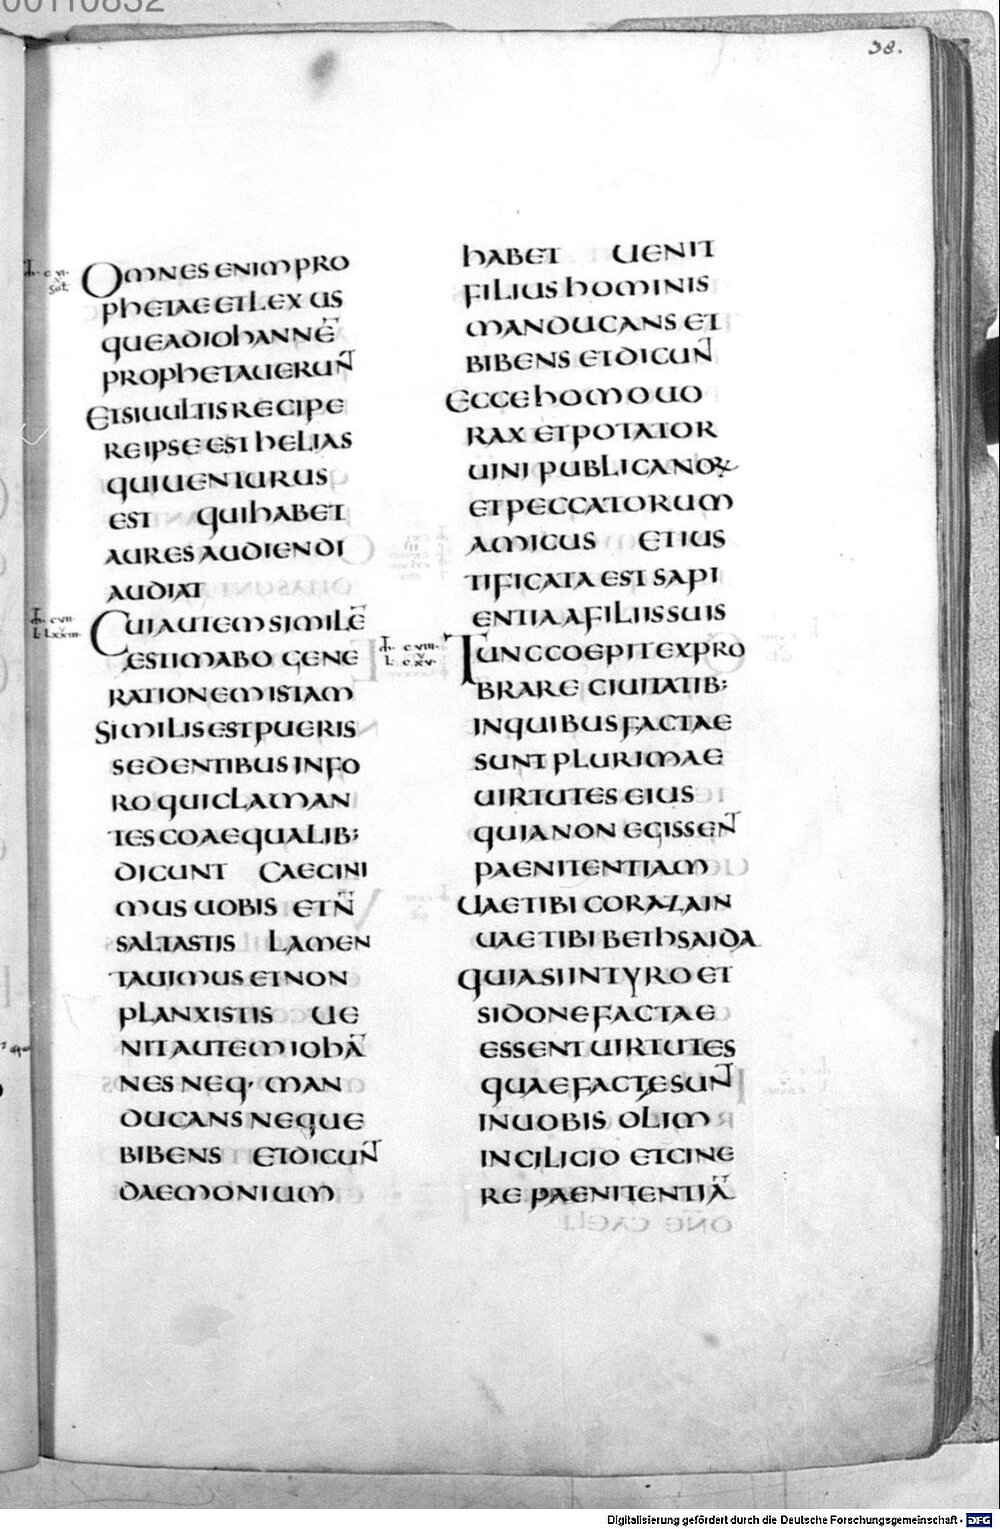 00110832
38.
OMNES ENIM PRO
PHETAE ET LEX US
QUE AD IOHANNE̅
PROPHETAUERUN̅T
ET SI UULTIS RECIPE
RE IPSE EST HELIAS
QUI UENTURUS
EST QUI HABET
AURES AUDIENDI
AUDIAT
CUI AUTEM SIMILE̅
AESTIMABO GENE
RATIONEM ISTAM
SIMILIS EST PUERIS
SEDENTIBUS IN FO
RO QUI CLAMAN
TES COAEQUALIB;
DICUNT CAECINI
MUS UOBIS ET N̅
SALTASTIS LAMEN
TAUIMUS ET NON
PLANXISTIS UE
NIT AUTEM IOHA̅
NES NEQ· MAN
DUCANS NEQUE
BIBENS ET DICUN̅T
DAEMONIUM
HABET UENIT
FILIUS HOMINIS
MANDUCANS ET
BIBENS ET DICUN̅T
ECCE HOMO UO
RAX ET POTATOR
UINI PUBLICANOꝝ
ET PECCATORUM
AMICUS ET IUS
TIFICATA EST SAPI
ENTIA A FILIIS SUIS
TUNC COEPIT EXPRO
BRARE CIUITATIB;
IN QUIBUS FACTAE
SUNT PLURIMAE
UIRTUTES EIUS
QUIA NON EGISSEN̅T
PAENITENTIAM
UAE TIBI CORAZAIN
UAE TIBI BETHSAIDA
QUIA SI IN TYRO ET
SIDONE FACTAE
ESSENT UIRTUTES
QUAE FACTE SUN̅T
IN UOBIS OLIM
IN CILICIO ET CINE
RE PAENITENTIA̅
Digitalisierung gefördert durch die Deutsche Forschungsgemeinschaft - DFG